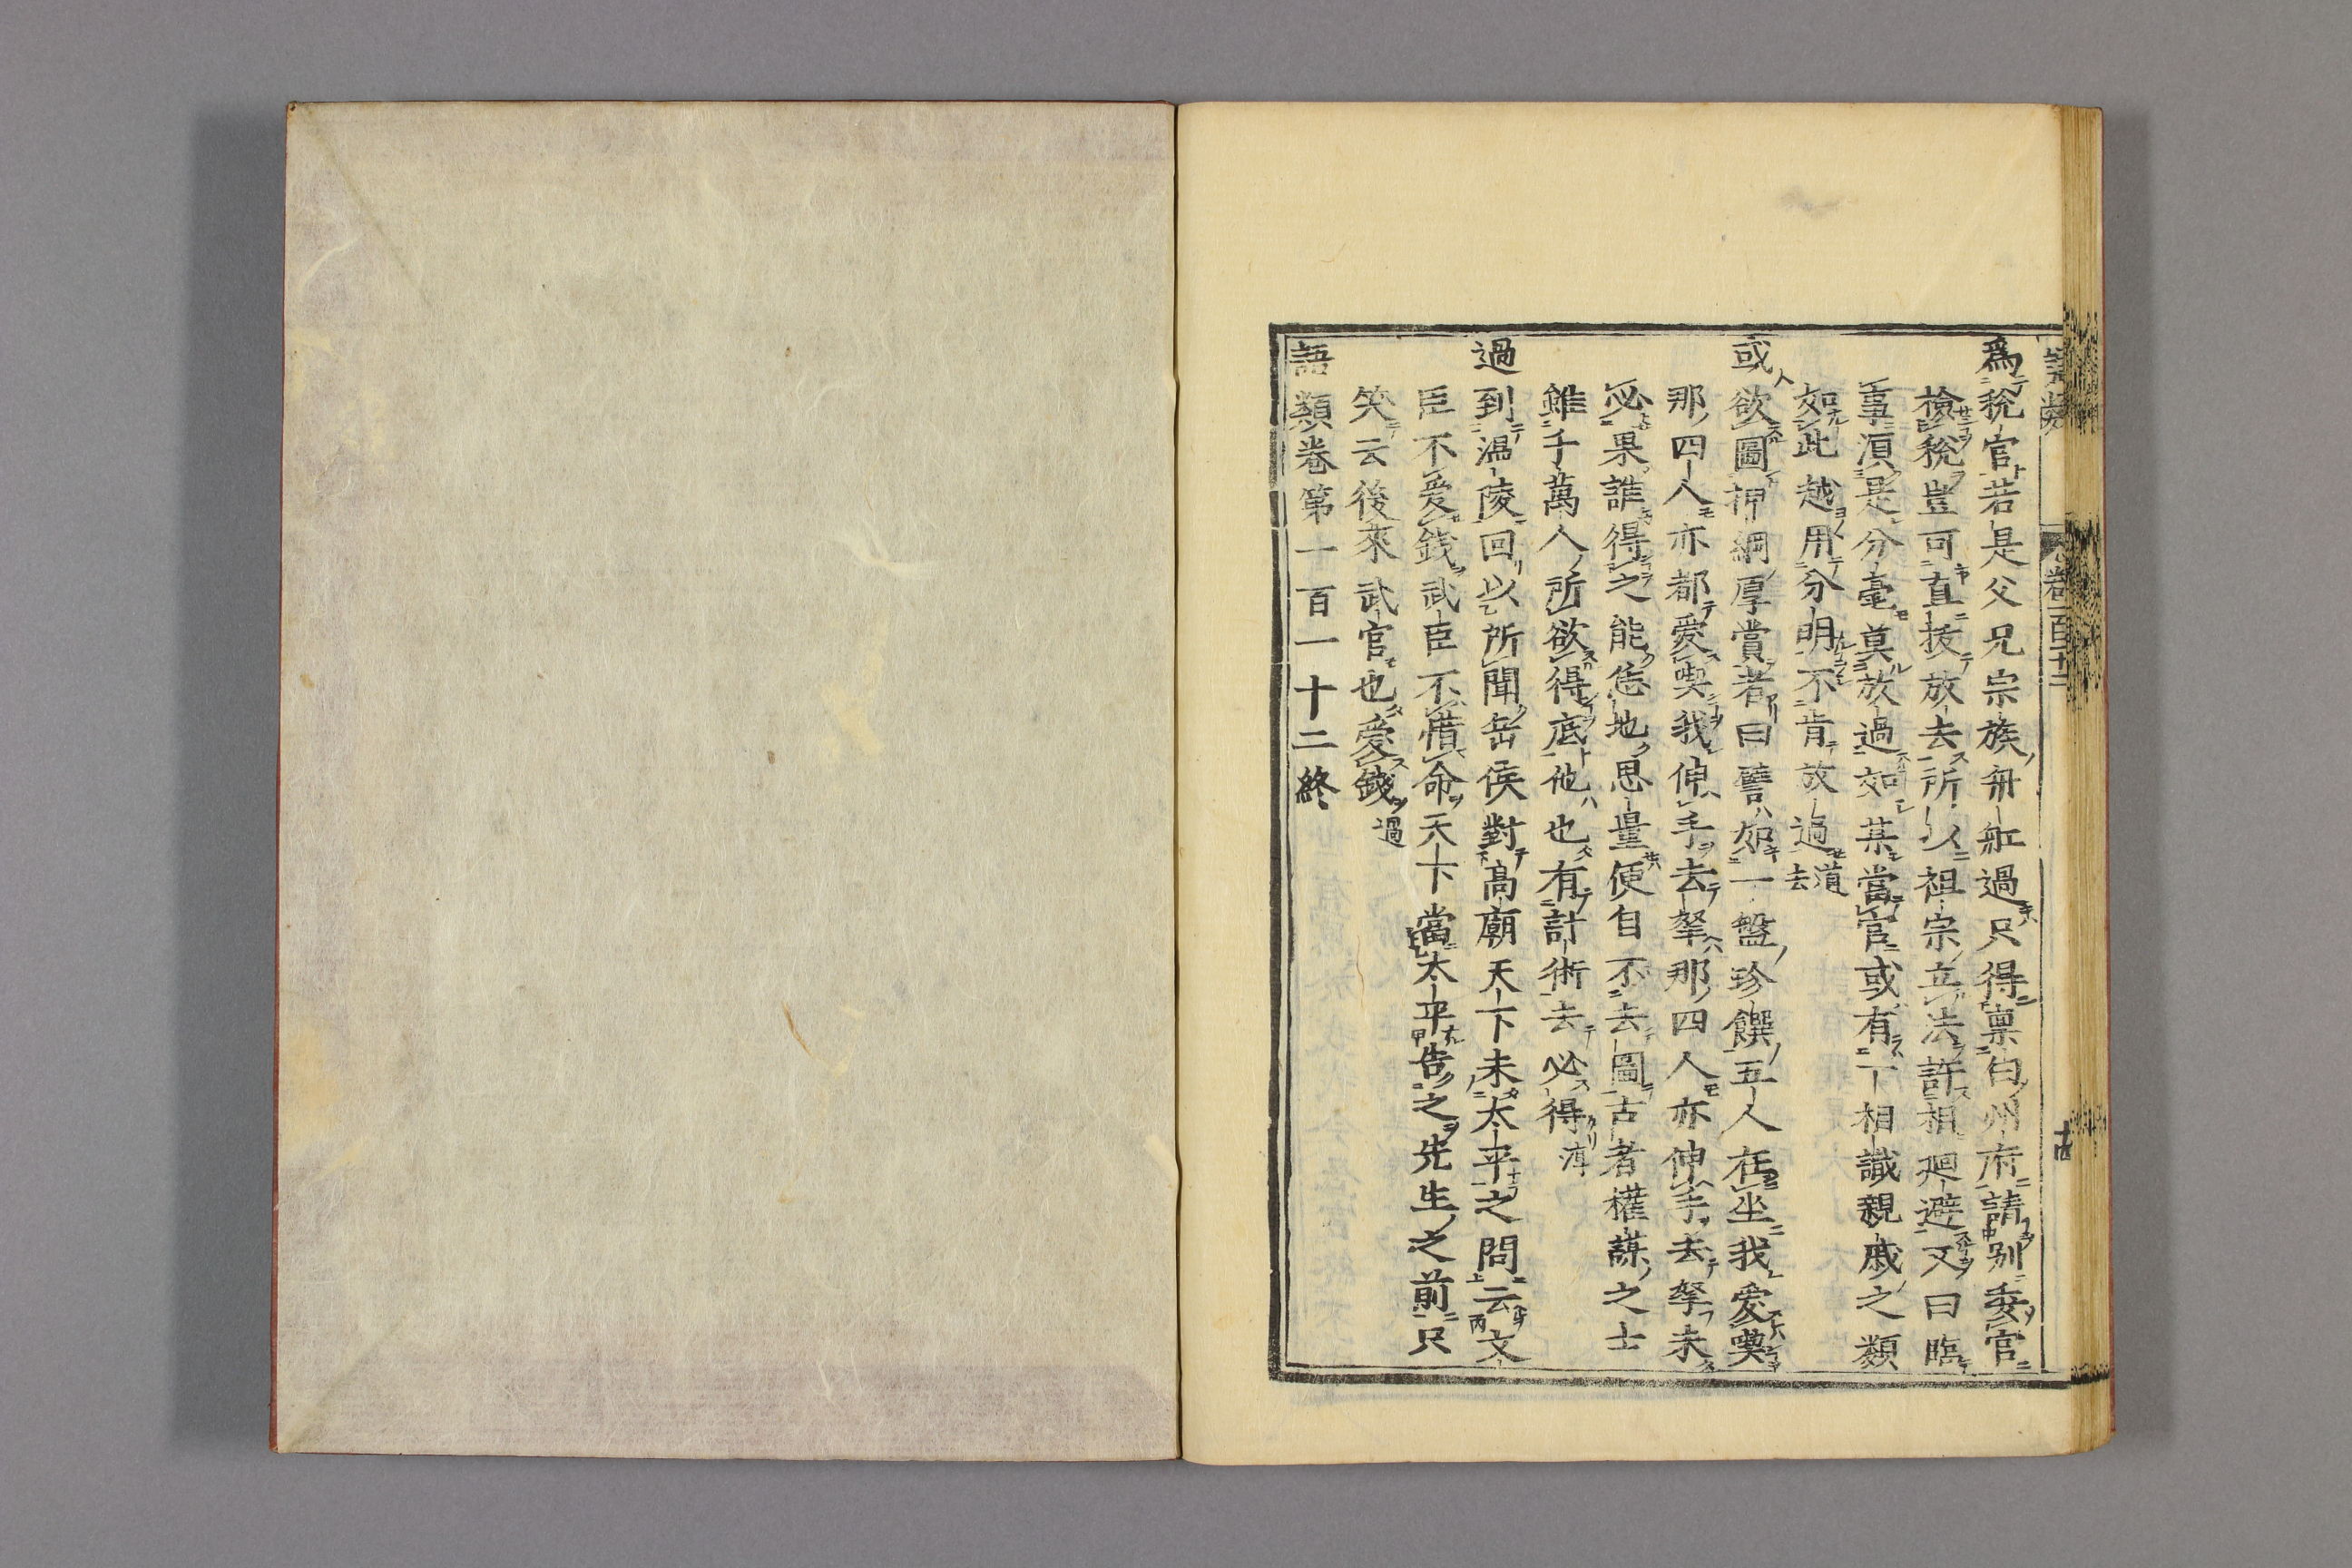 爲稅官若是父兄宗族舟舡過只得稟白州府請別委官
檢稅豈可直拔放去所以祖宗立法許相廻避又曰臨
事湏是分毫莫放過如某當官或有一相識親戚之類
如此越用分明不肯放過道去
或人欲圖押綱厚賞者曰譬如一盤珍饌五人在坐我愛喫
那四人亦都愛喫我伸手去拏那四人亦伸手去拏未
必果誰得之能恁地思量便自不去圖古者權謀之士
雖千萬人所欲得底他也有計術去必得淳
過到溫陵回以所聞岳侯對高廟天下未太平之問云文
臣不愛錢武臣不惜命天下當太平告之先生之前只
笑云後來武官也愛錢過
語類卷第一百一十二終
語類
卷一百十二
十四